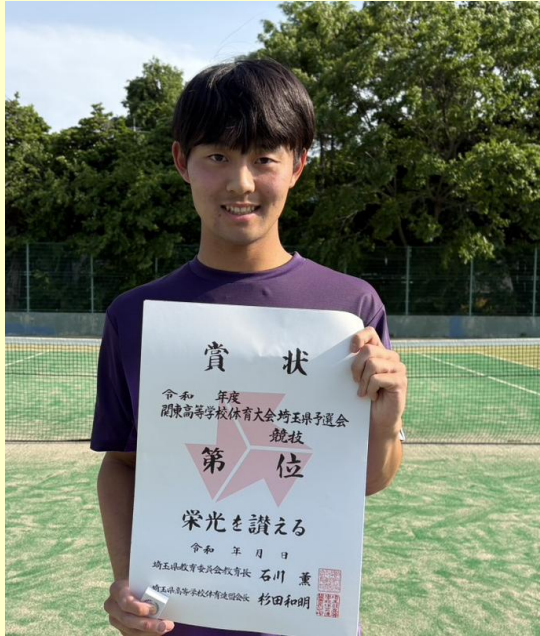 賞 状
令和 年度
関東高等学校体育大会埼玉県予選会
競技
第 位
栄光を讃える
令和 年 月 日
埼玉県教育委員会教育長 石川 薫
埼玉県高等学校体育連盟会長 杉田和明